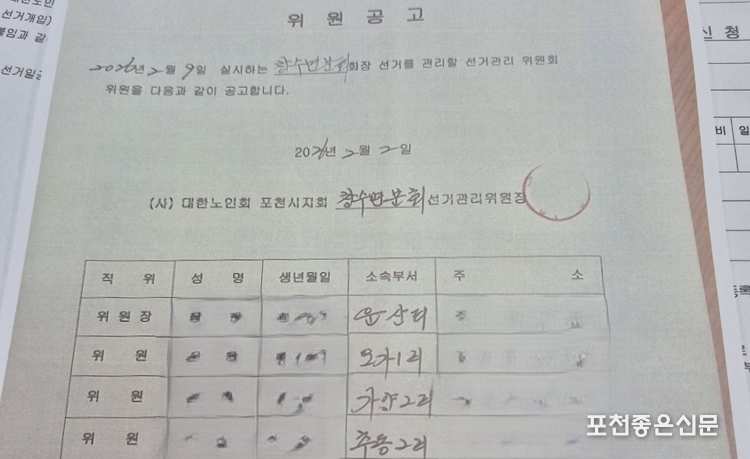 선거개입)
위 원 공 고
2026년 2월 9일 실시하는 창수면분회회장 선거를 관리할 선거관리 위원회
위원을 다음과 같이 공고합니다.
2026년 2월 2일
(사) 대한노인회 포천시지회 창수면분회선거관리위원장
직 위 성 명 생년월일 소속부서 주 소
위 원 장 운산리
위 원 오가1리
위 원 가양2리
위 원 주동2리
신 청
비 일
포천좋은신문